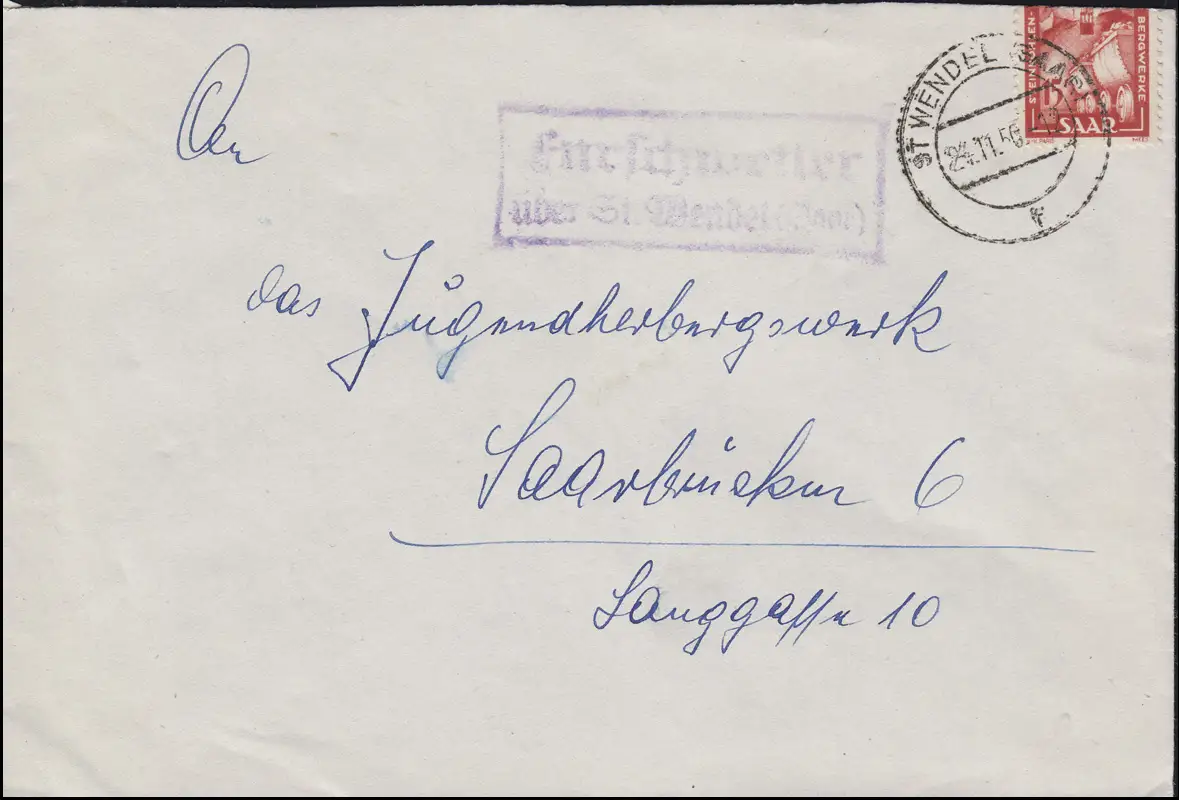 An
das Jugendherbergswerk
Saarbrücken 6
Langgasse 10
über St. Wendel (Saar)
ST WENDEL (SAAR)
24.11.50
f
STEINKOHLEN-
BERGWERKE
15
SAAR